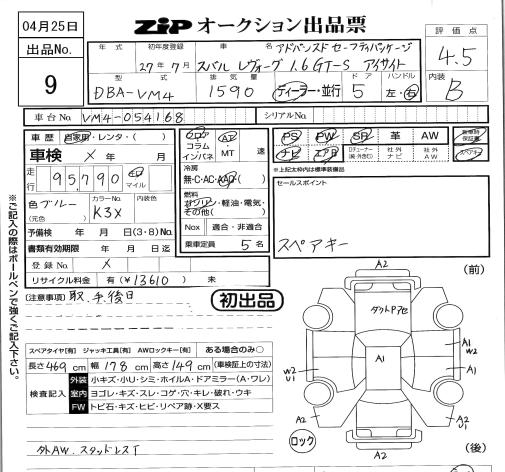 04月25日
ZIP オークション出品票
出品No.
9
評価点
4.5
内装
B
年式 初年度登録 車名 アドバンスドセーフティパッケージ
27年7月 スバル レヴォーグ 1.6GT-S アイサイト
型式 排気量 ドア ハンドル
DBA-VM4 1590 ディーラー・並行 5 左・右
車台No. VM4-054168 シリアルNo.
車歴 自家用・レンタ・( )
車検 × 年 月
走行 95,790 キロ マイル
色 ブルー カラーNo. K3X 内装色
(元色)
予備検 年 月 日(3・8)No.
書類有効期限 年 月 日迄
登録No. ×
リサイクル料金 有(¥13610) 未
フロア コラム インパネ AT・MT 速
冷房
無・C・AC・AAC・( )
燃料
ガソリン・軽油・電気・
その他( )
Nox 適合・非適合
乗車定員 5名
PS PW SR 革 AW 新車時保証書
ナビ エアB TVチューナー(純・外含む) 社外ナビ 社外AW スペアキー
※上記太枠内は標準装備品
セールスポイント
スペアキー
(注意事項) 取、手後日
初出品
スペアタイヤ[有] ジャッキ工具[有] AWロックキー[有] ある場合のみ○
長さ469cm 幅178cm 高さ149cm (車検証上の寸法)
検査記入
外装 小キズ・小U・シミ・ホイルA・ドアミラー(A・ワレ)
室内 ヨゴレ・キズ・スレ・コゲ・穴・キレ・破れ・ウキ
FW トビ石・キズ・ヒビ・リペア跡・X要ス
外AW.スタッドレスT
※ご記入の際はボールペンで強くご記入下さい。
A2
(前)
A2
A1
A1
W2
A1
W2
U1
A2
A2
U1
ロック
A2
(後)